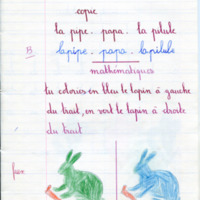 copie
la pipe. papa. la pilule
B lapipe. papa. lapilule
mathématiques
tu colories en bleu le lapin à gauche
du trait, en vert le lapin à droite
du trait.